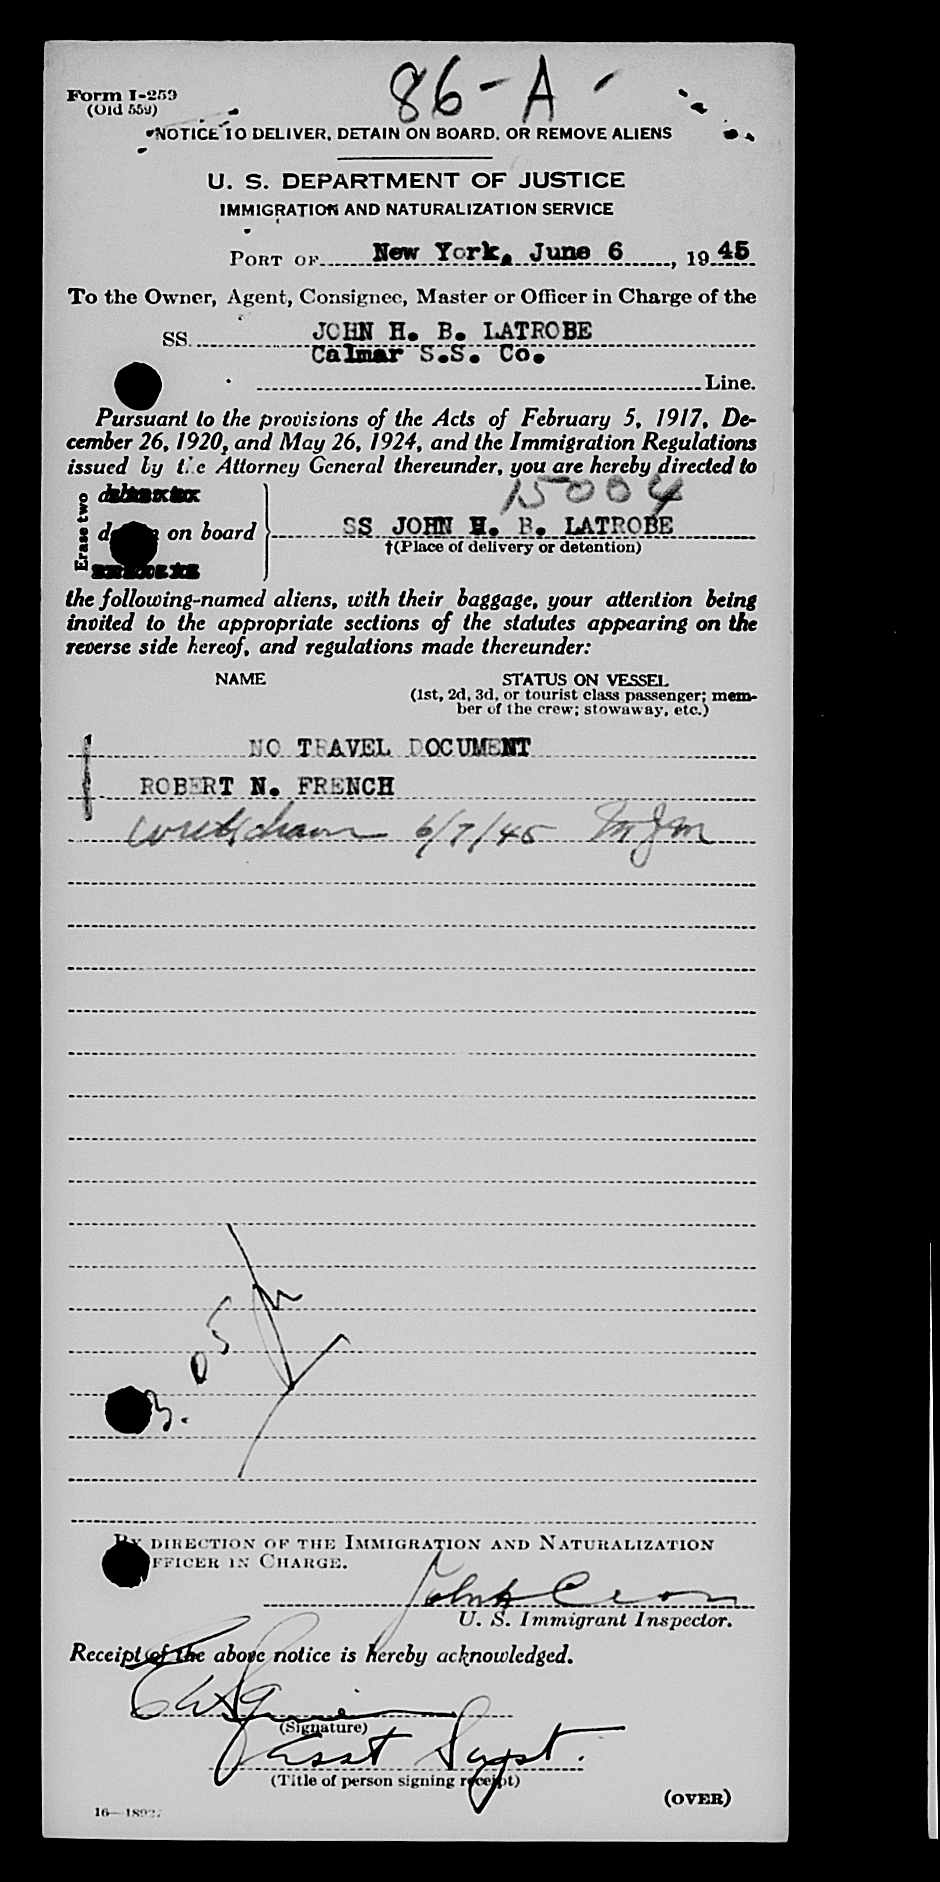 86-A-
Form I-259
(Old 559)
NOTICE TO DELIVER, DETAIN ON BOARD, OR REMOVE ALIENS
U. S. DEPARTMENT OF JUSTICE
IMMIGRATION AND NATURALIZATION SERVICE
PORT OF New York, June 6, 1945
To the Owner, Agent, Consignee, Master or Officer in Charge of the
SS. JOHN H. B. LATROBE
Calmar S.S. Co.
Line.
Pursuant to the provisions of the Acts of February 5, 1917, De-
cember 26, 1920, and May 26, 1924, and the Immigration Regulations
issued by the Attorney General thereunder, you are hereby directed to
15004
Erase two
on board SS JOHN H. B. LATROBE
†(Place of delivery or detention)
the following-named aliens, with their baggage, your attention being
invited to the appropriate sections of the statutes appearing on the
reverse side hereof, and regulations made thereunder:
NAME STATUS ON VESSEL
(1st, 2d, 3d, or tourist class passenger; mem-
ber of the crew; stowaway, etc.)
NO TRAVEL DOCUMENT
1 ROBERT N. FRENCH
Withdrawn 6/7/45 MJM
3.05
BY DIRECTION OF THE IMMIGRATION AND NATURALIZATION
OFFICER IN CHARGE.
U. S. Immigrant Inspector.
Receipt of the above notice is hereby acknowledged.
(Signature)
Asst Supt.
(Title of person signing receipt)
(OVER)